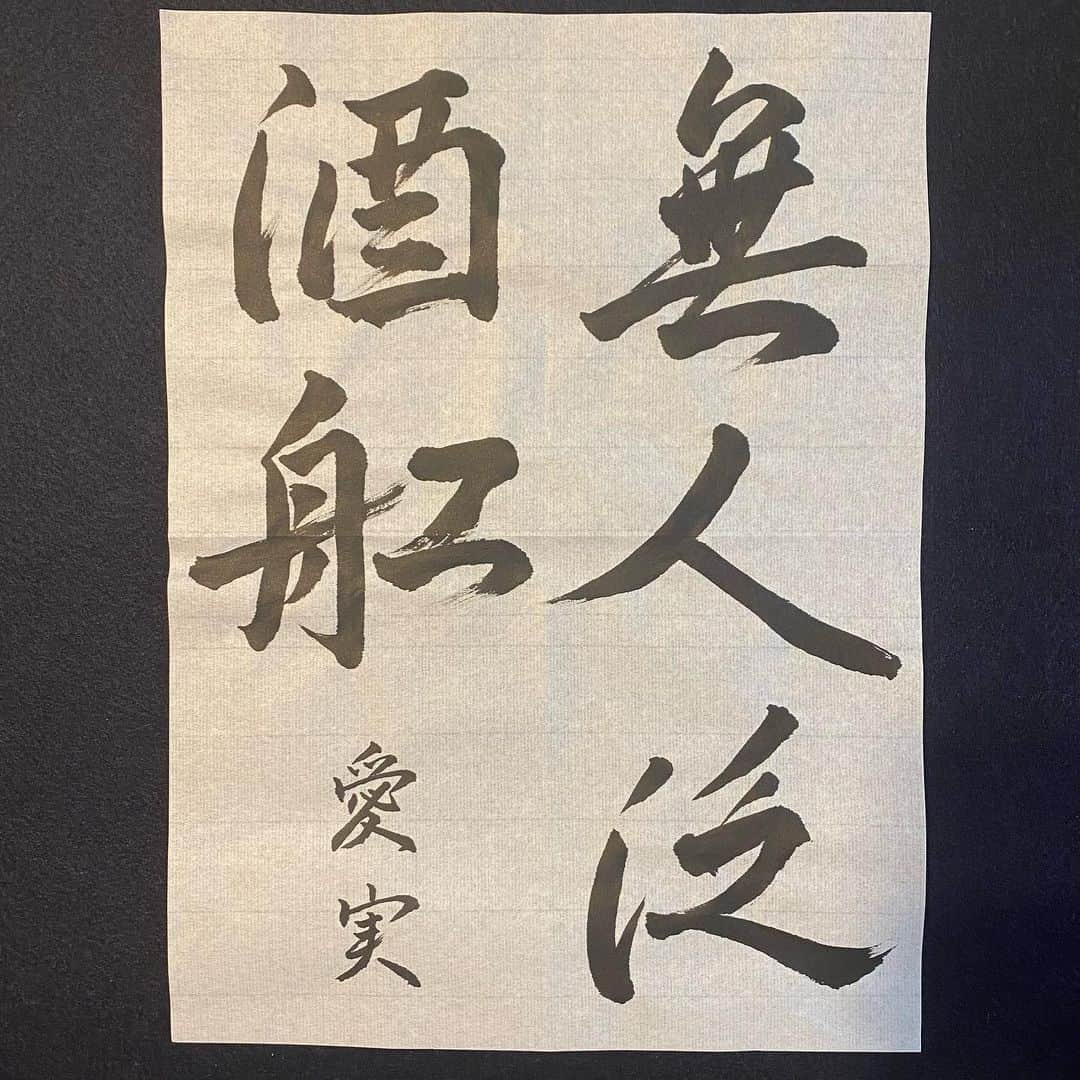 無人泛
酒舩
愛実